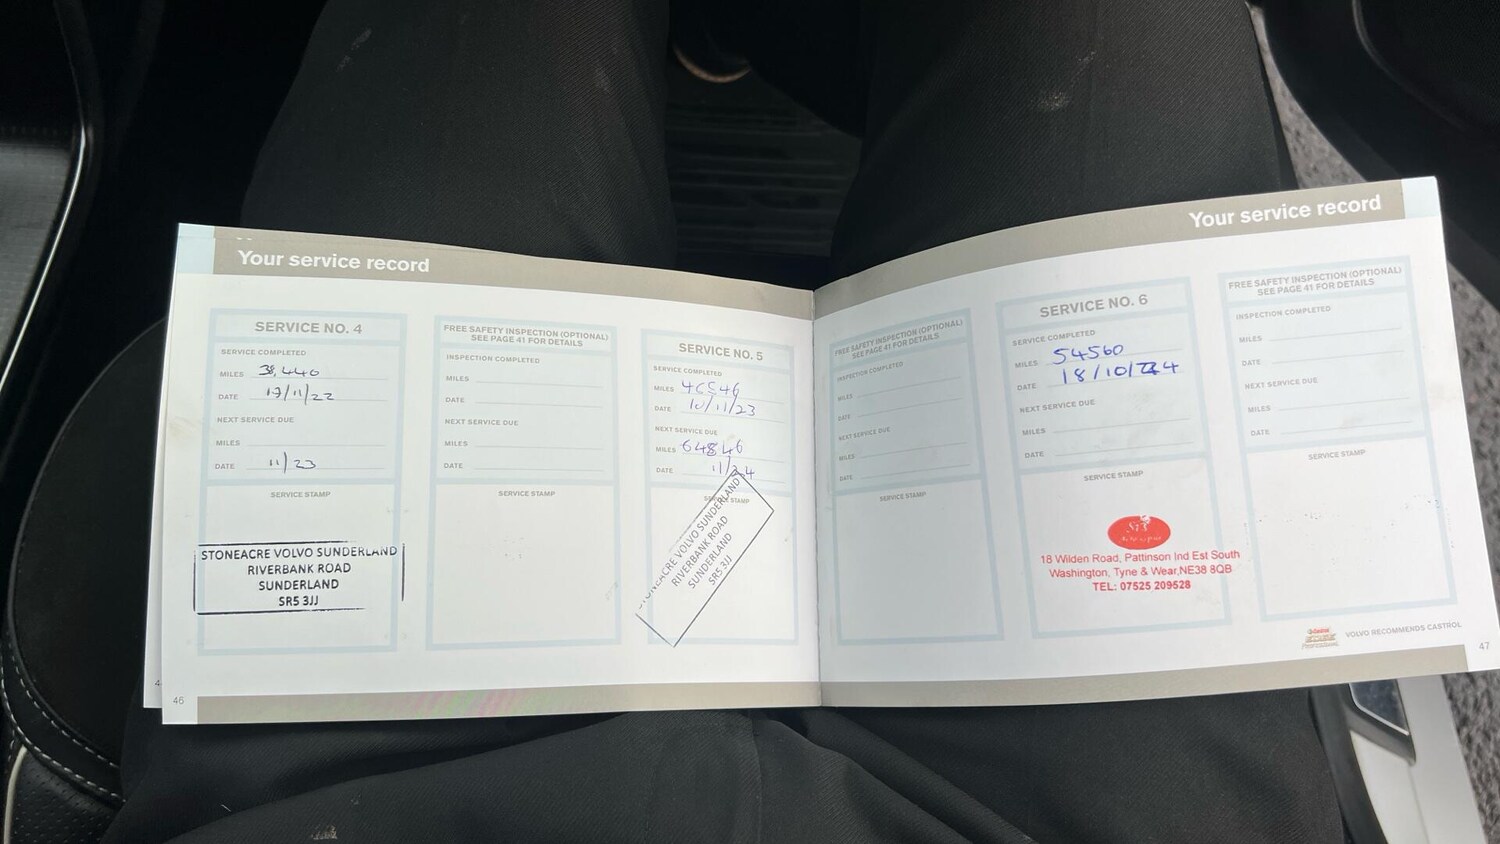 Your service record
SERVICE NO. 4
SERVICE COMPLETED
MILES 38,440
DATE 17/11/22
NEXT SERVICE DUE
MILES
DATE 11/23
SERVICE STAMP
STONEACRE VOLVO SUNDERLAND
RIVERBANK ROAD
SUNDERLAND
SR5 3JJ
FREE SAFETY INSPECTION (OPTIONAL)
SEE PAGE 41 FOR DETAILS
INSPECTION COMPLETED
MILES
DATE
NEXT SERVICE DUE
MILES
DATE
SERVICE STAMP
SERVICE NO. 5
SERVICE COMPLETED
MILES 46546
DATE 10/11/23
NEXT SERVICE DUE
MILES 64846
DATE 11/24
SERVICE STAMP
STONEACRE VOLVO SUNDERLAND
RIVERBANK ROAD
SUNDERLAND
SR5 3JJ
46
Your service record
FREE SAFETY INSPECTION (OPTIONAL)
SEE PAGE 41 FOR DETAILS
INSPECTION COMPLETED
MILES
DATE
NEXT SERVICE DUE
MILES
DATE
SERVICE STAMP
SERVICE NO. 6
SERVICE COMPLETED
MILES 54560
DATE 18/10/24
NEXT SERVICE DUE
MILES
DATE
SERVICE STAMP
18 Wilden Road, Pattinson Ind Est South
Washington, Tyne & Wear,NE38 8QB
TEL: 07525 209528
FREE SAFETY INSPECTION (OPTIONAL)
SEE PAGE 41 FOR DETAILS
INSPECTION COMPLETED
MILES
DATE
NEXT SERVICE DUE
MILES
DATE
SERVICE STAMP
VOLVO RECOMMENDS CASTROL
47